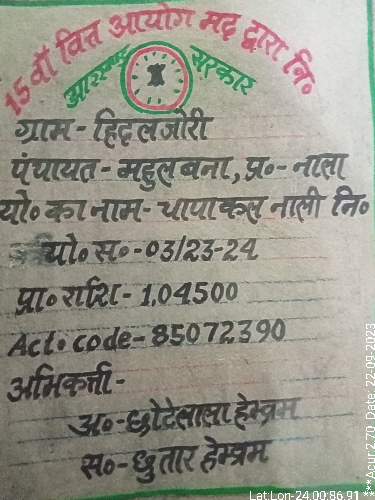 15वाँ वित्त आयोग मद द्वारा नि०
झारखण्ड सरकार
ग्राम - हिदलजोरी
पंचायत - महुलबना, प्र० - नाला
यो० का नाम - चापाकल नाली नि०
यो० स० - 03/23-24
प्रा० राशि - 1,04500
Act. code - 85072390
अभिकर्त्ता -
अ० - छोटेलाल हेम्ब्रम
स० - छुतार हेम्ब्रम
Lat:Lon-24.00:86.91 ***Acur:2.70 Date: 22-09-2023